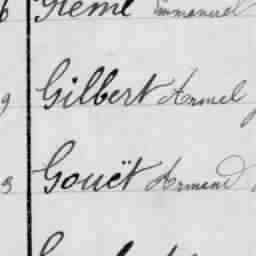 Emmanuel
9 Gilbert Armel
3 Gouët Armand